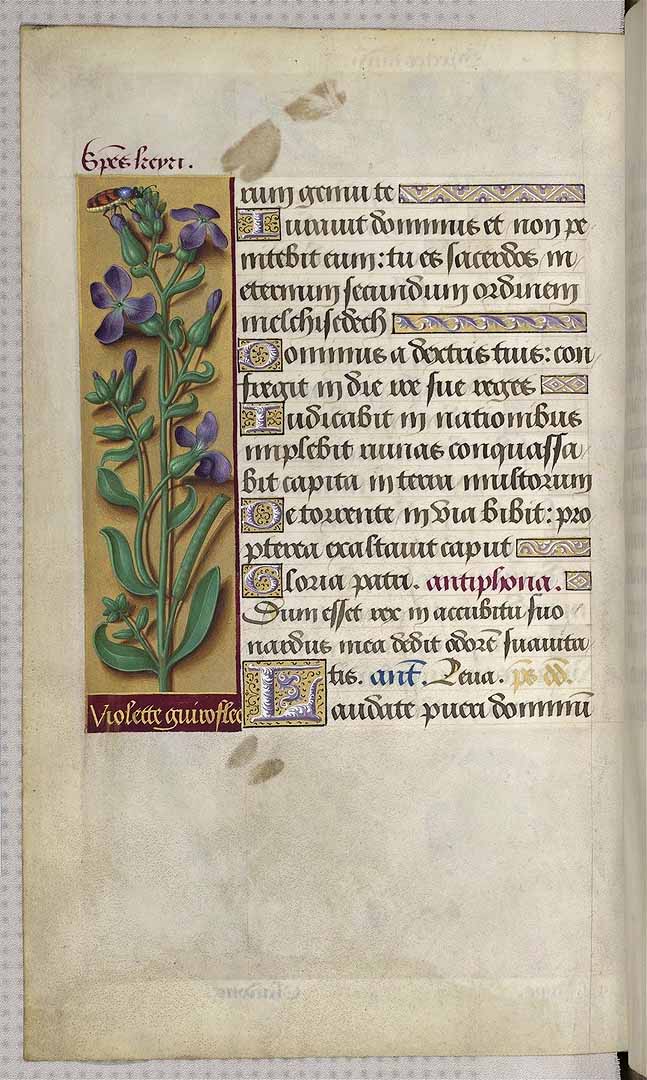 Sp̄es keyri.
rum genui te
Iurauit dominus et non pe
nitebit eum: tu es sacerdos in
eternum secundum ordinem
melchisedech
Dominus a dextris tuis: con
fregit in die ire sue reges
Iudicabit in nationibus
implebit ruinas conquassa
bit capita in terra multorum
De torrente in via bibit: pro
pterea exaltauit caput
Gloria patri. antiphona.
Dum esset rex in accubitu suo
nardus mea dedit odorē suauita
tis. ant̄. Leua. ps̄
Laudate pueri dominū
Violette guiroflee